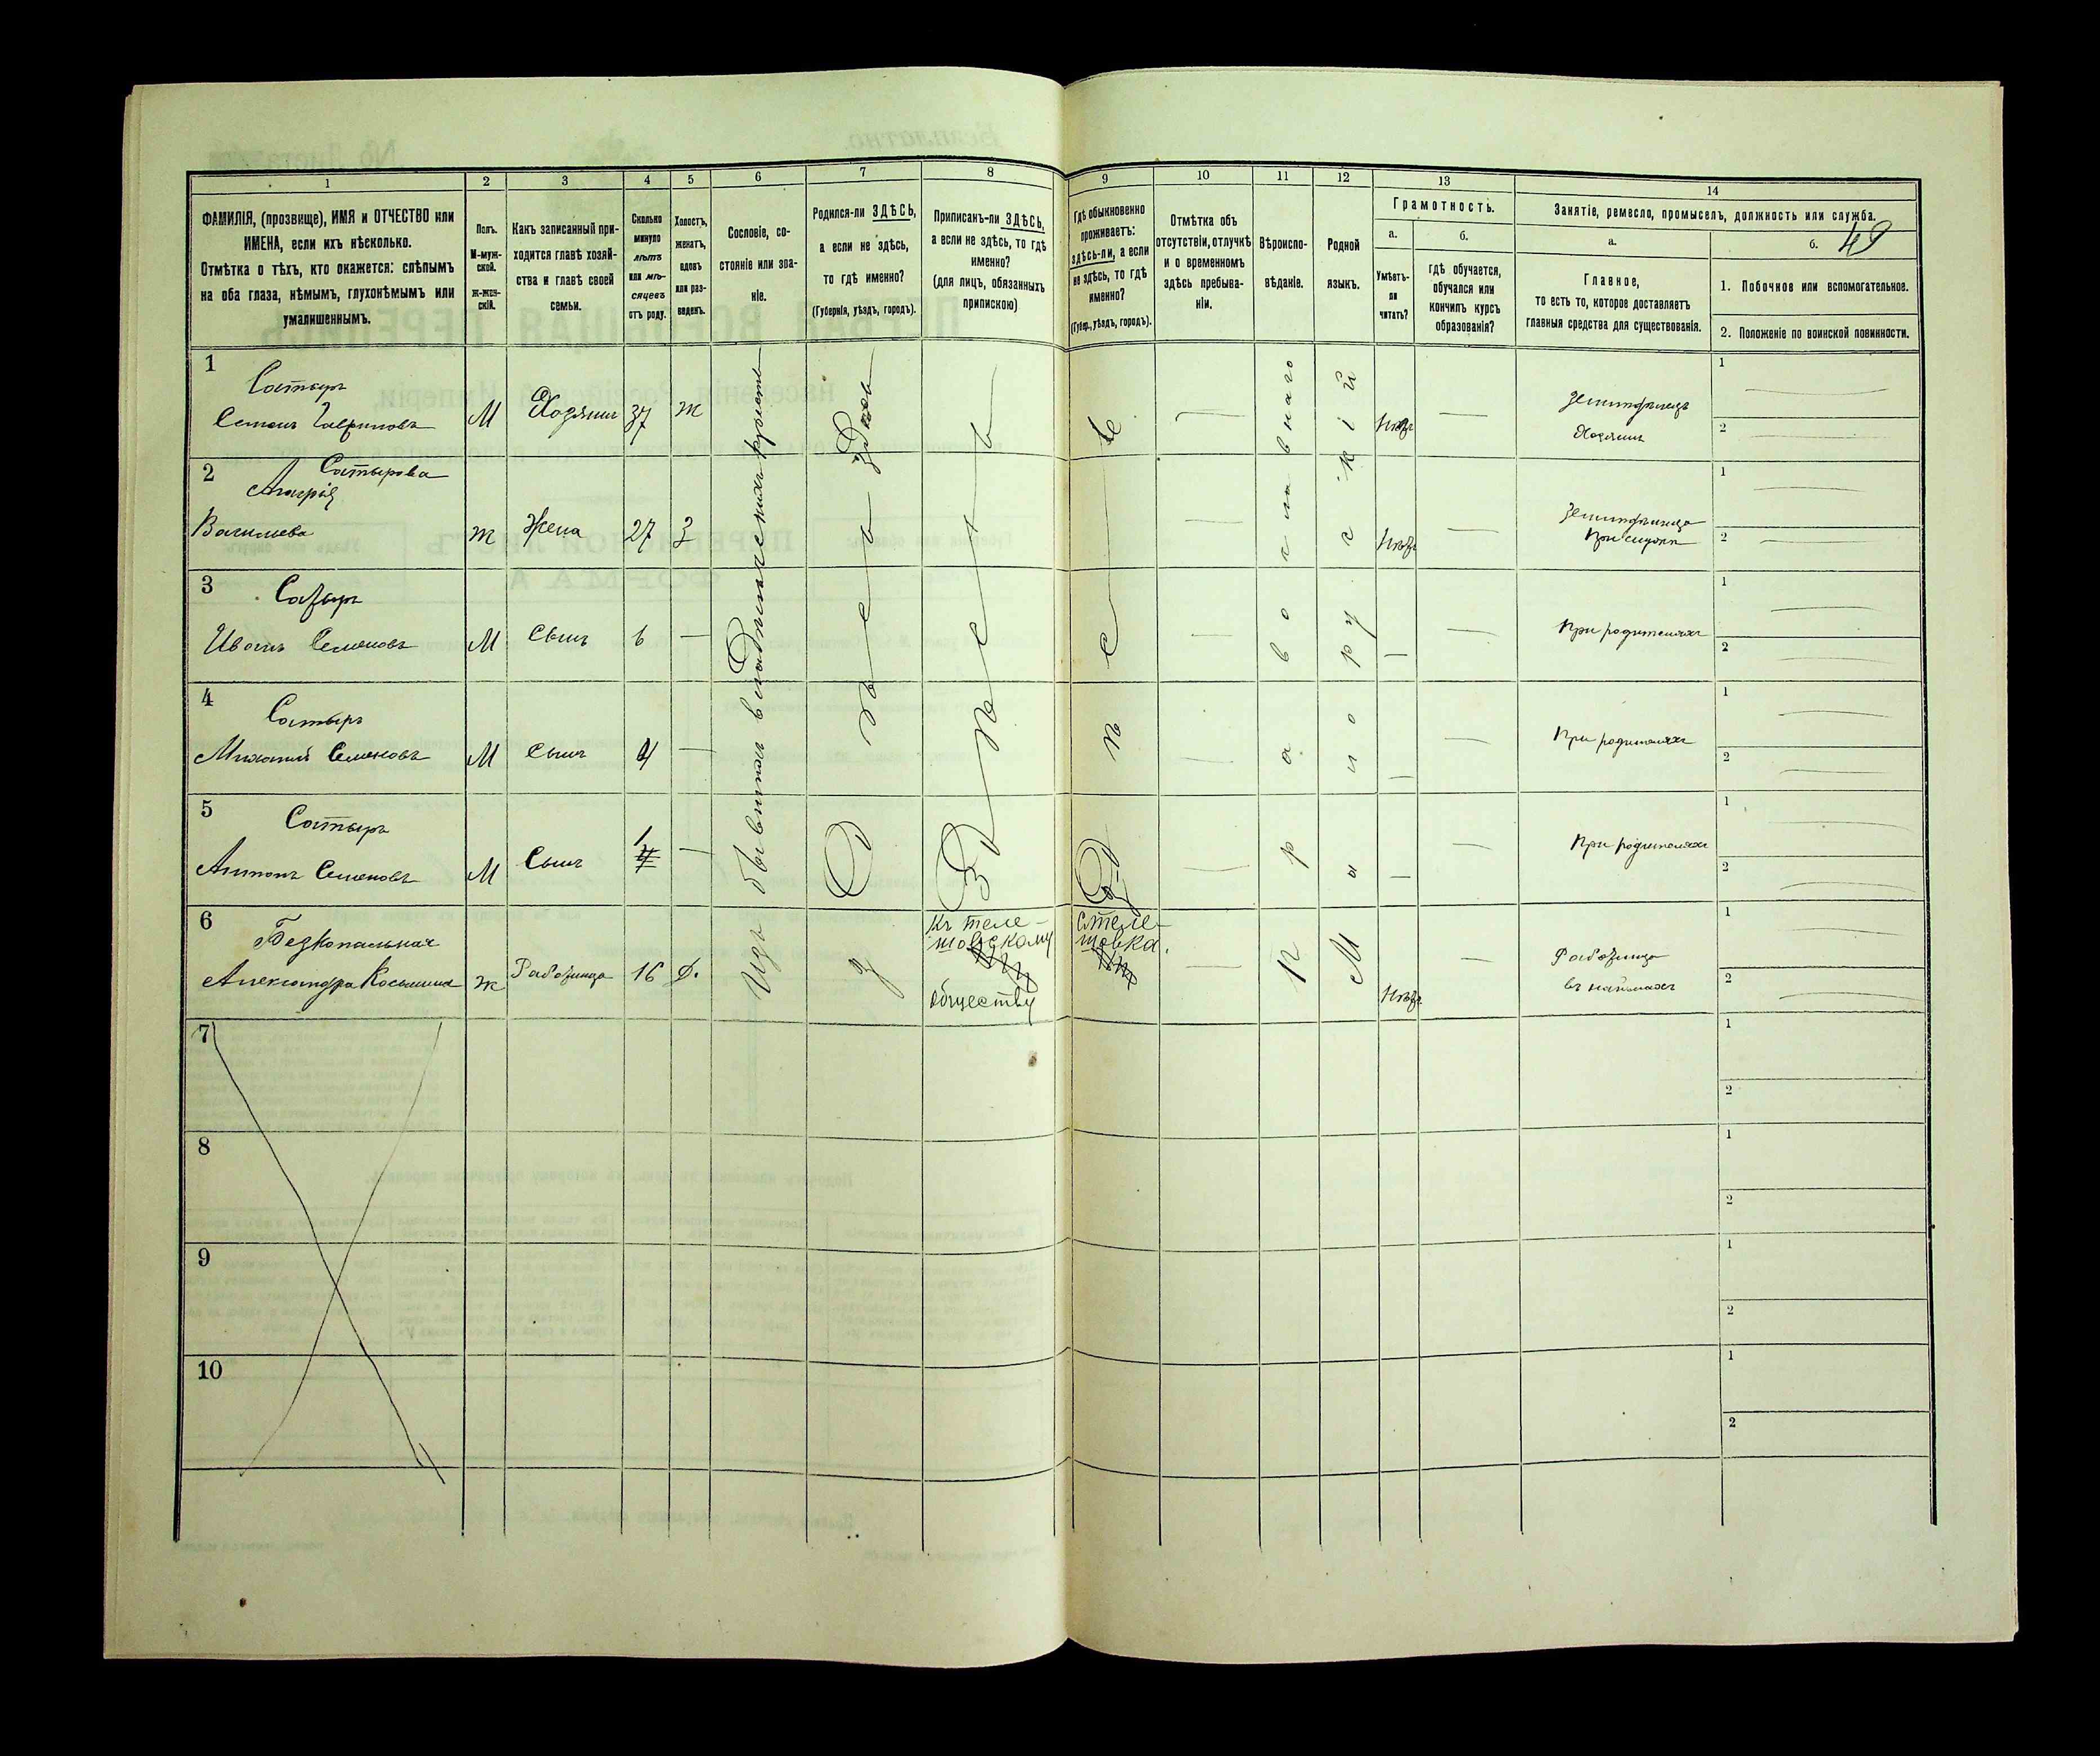 49
1
2
3
4
5
6
7
8
9
10
11
12
13
14
ФАМИЛІЯ, (прозвище), ИМЯ и ОТЧЕСТВО или
ИМЕНА, если ихъ нѣсколько.
Отмѣтка о тѣхъ, кто окажется: слѣпымъ
на оба глаза, нѣмымъ, глухонѣмымъ или
умалишеннымъ.
Полъ.
М-муж-
ской.
Ж-жен-
скій.
Какъ записанный при-
ходится главѣ хозяй-
ства и главѣ своей
семьи.
Сколько
минуло
лѣтъ
или мѣ-
сяцевъ
отъ роду.
Холостъ,
женатъ,
вдовъ
или раз-
веденъ.
Сословіе, со-
стояніе или зва-
ніе.
Родился-ли ЗДѢСЬ,
а если не здѣсь,
то гдѣ именно?
(Губернія, уѣздъ, городъ).
Приписанъ-ли ЗДѢСЬ,
а если не здѣсь, то гдѣ
именно?
(для лицъ, обязанныхъ
припискою)
Гдѣ обыкновенно
проживаетъ:
здѣсь-ли, а если
не здѣсь, то гдѣ
именно?
(Губер., уѣздъ, городъ).
Отмѣтка объ
отсутствіи, отлучкѣ
и о временномъ
здѣсь пребыва-
ніи.
Вѣроиспо-
вѣданіе.
Родной
языкъ.
Грамотность.
а.
Умѣетъ-
ли
читать?
б.
гдѣ обучается,
обучался или
кончилъ курсъ
образованія?
Занятіе, ремесло, промыселъ, должность или служба.
а.
Главное,
то есть то, которое доставляетъ
главныя средства для существованія.
б.
1. Побочное или вспомогательное.
2. Положеніе по воинской повинности.
1
Сатыръ
Семенъ Гавриловъ
М
Хозяинъ
37
ж
Нѣтъ
Хозяинъ
1
2
2
Сатырова
Василиева
ж
Жена
27
З
Нѣтъ
1
2
3
Сатыръ
Иванъ Семеновъ
М
Сынъ
6
При родителяхъ
1
2
4
Сатыръ
Семеновъ
М
Сынъ
4
При родителяхъ
1
2
5
Сатыръ
Антонъ Семеновъ
М
Сынъ
1
При родителяхъ
1
2
6
Александра
ж
Работница
16
Д.
Къ Теле-
шовскому
обществу
С. Теле-
шовка.
Нѣтъ
Работница
въ наймахъ
1
2
Изъ бывшихъ владѣльческихъ крестьянъ
Здѣсь
Здѣсь
Православнаго
Малорусскій
7
1
2
8
1
2
9
1
2
10
1
2